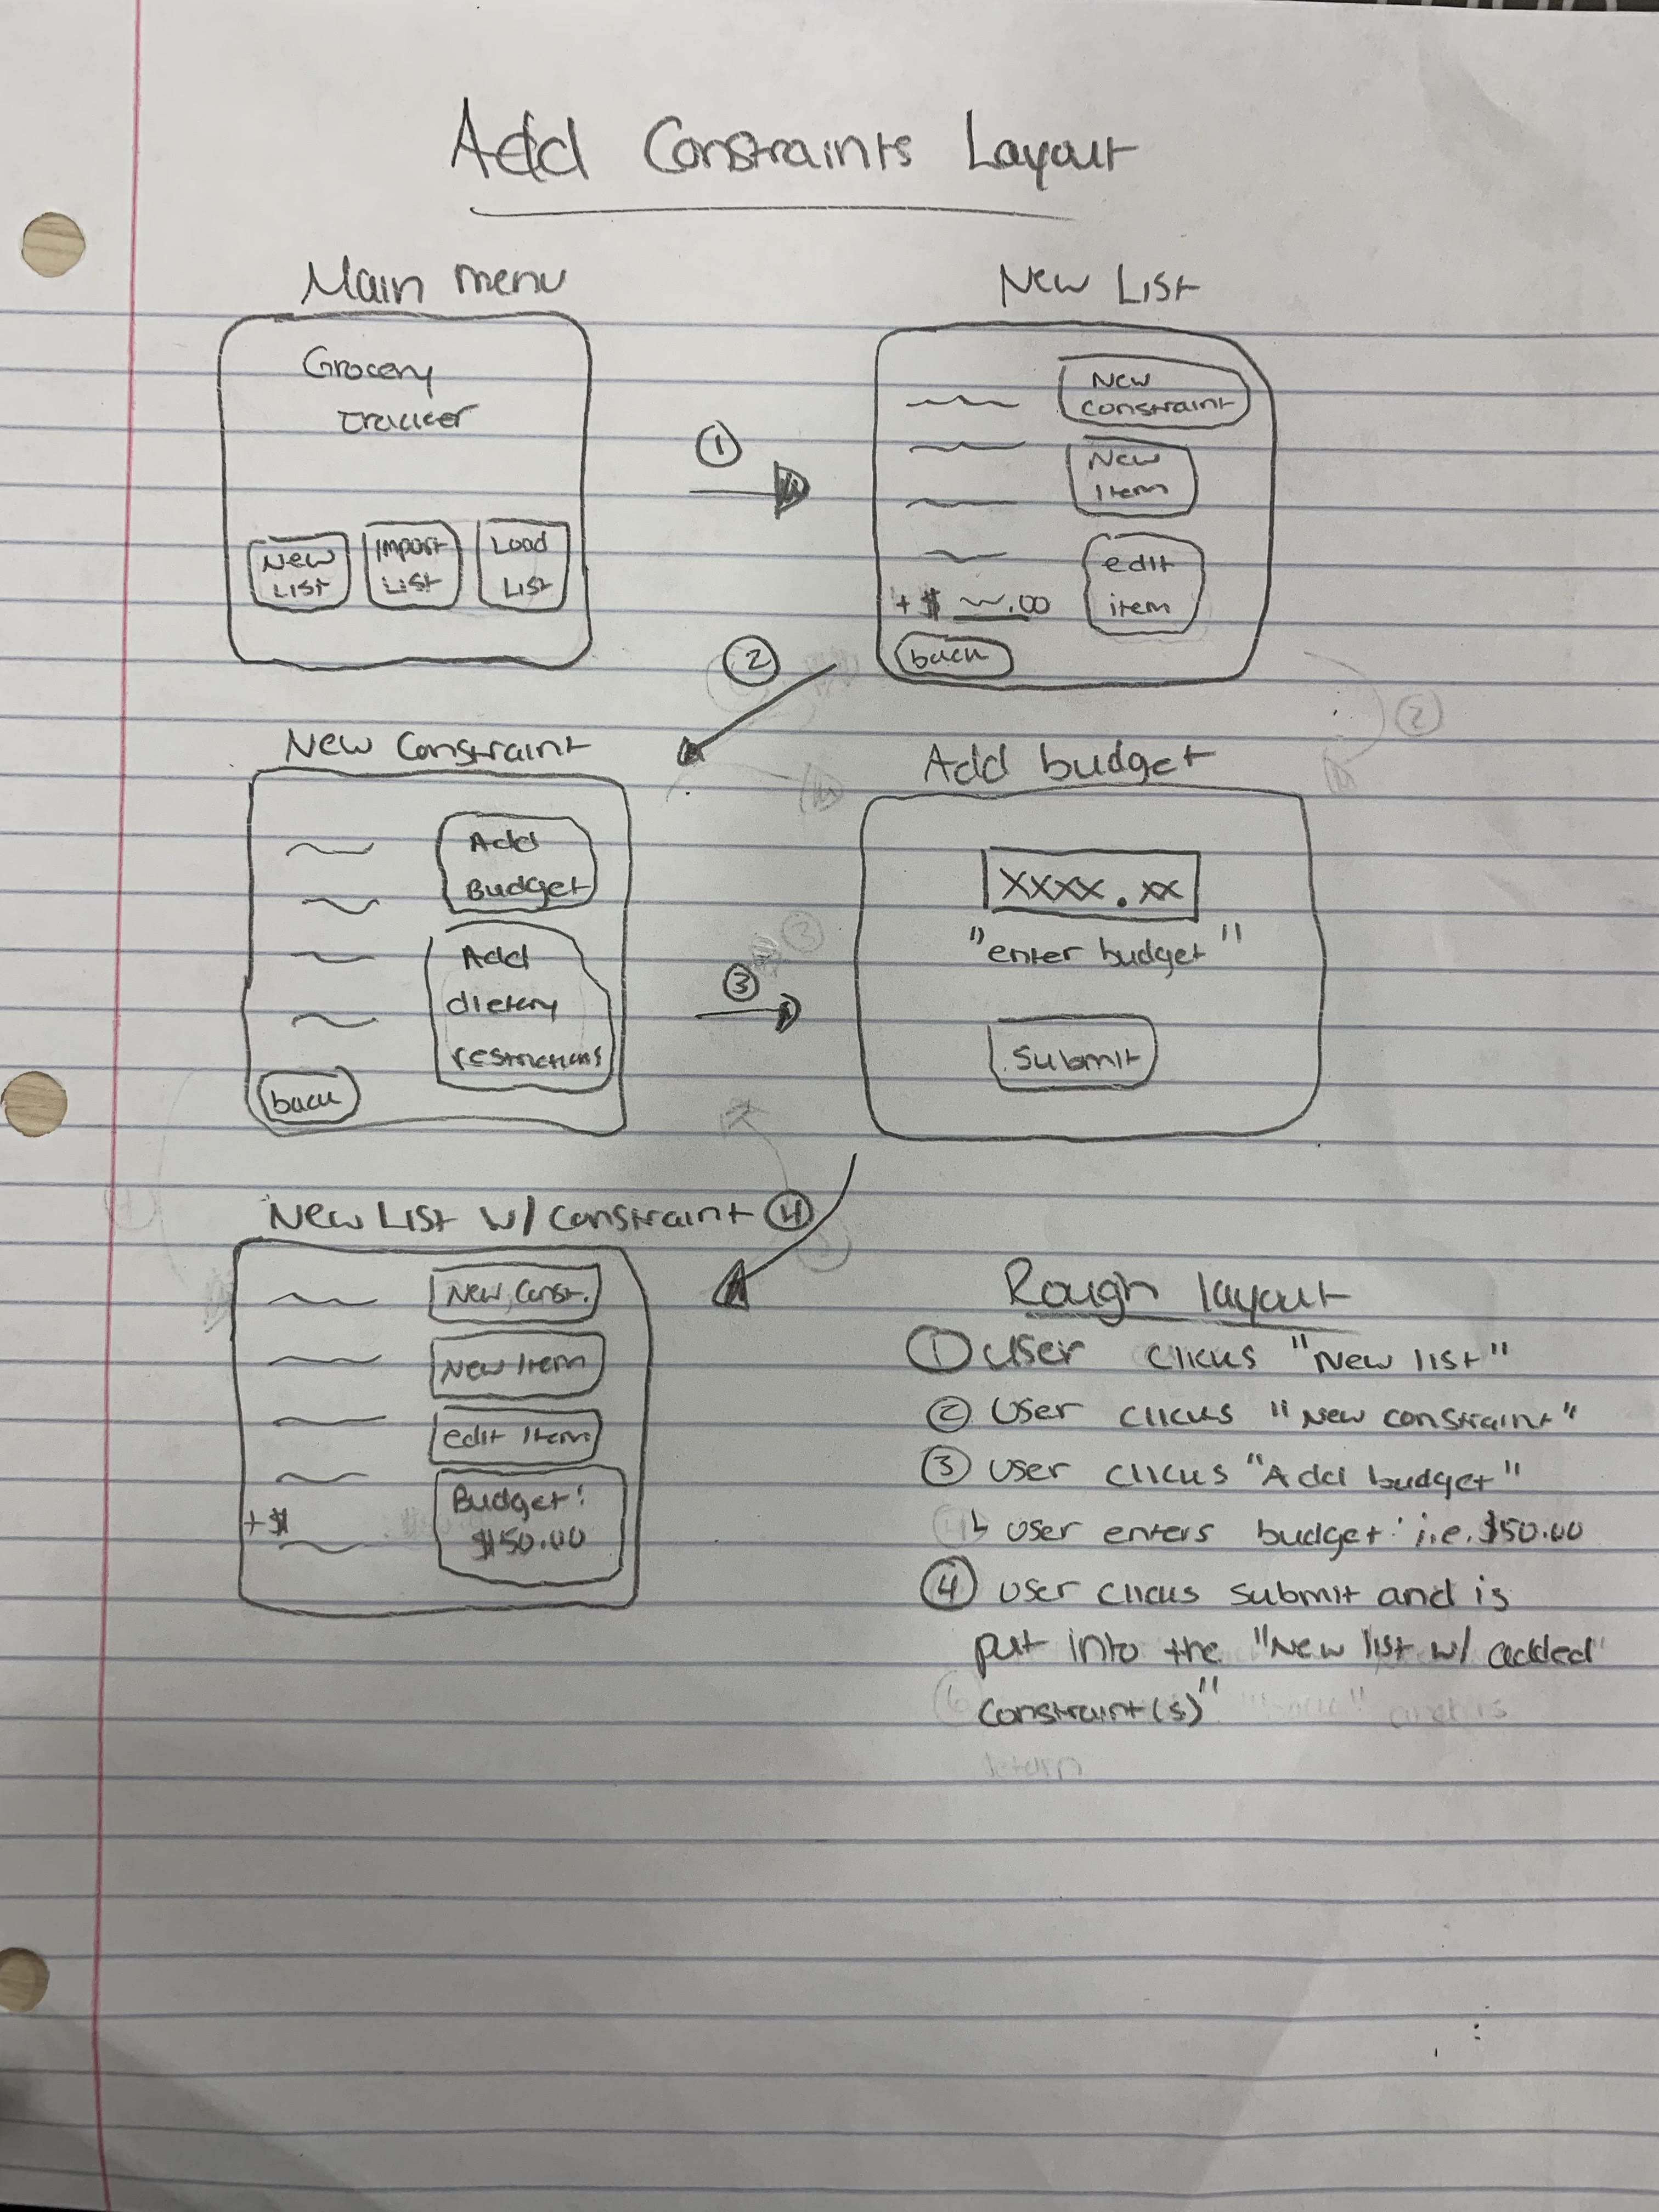 Add Constraints Layout
Main menu
Grocery
Tracker
New
List
Import
List
Load
List
1
New List
New
Constraint
New
Item
edit
item
+ $ .00
back
2
2
New Constraint
Add
Budget
Add
dietary
restrictions
back
3
3
Add budget
XXXX.XX
"enter budget"
Submit
New List w/ constraint
4
New Const.
New Item
edit item
Budget:
$150.00
+$
Rough layout
1 User clicks "New list"
2 User clicks "New constraint"
3 User clicks "Add budget"
↳ User enters budget: i.e. $150.00
4 User clicks submit and is
put into the "New list w/ added
Constraint(s)"